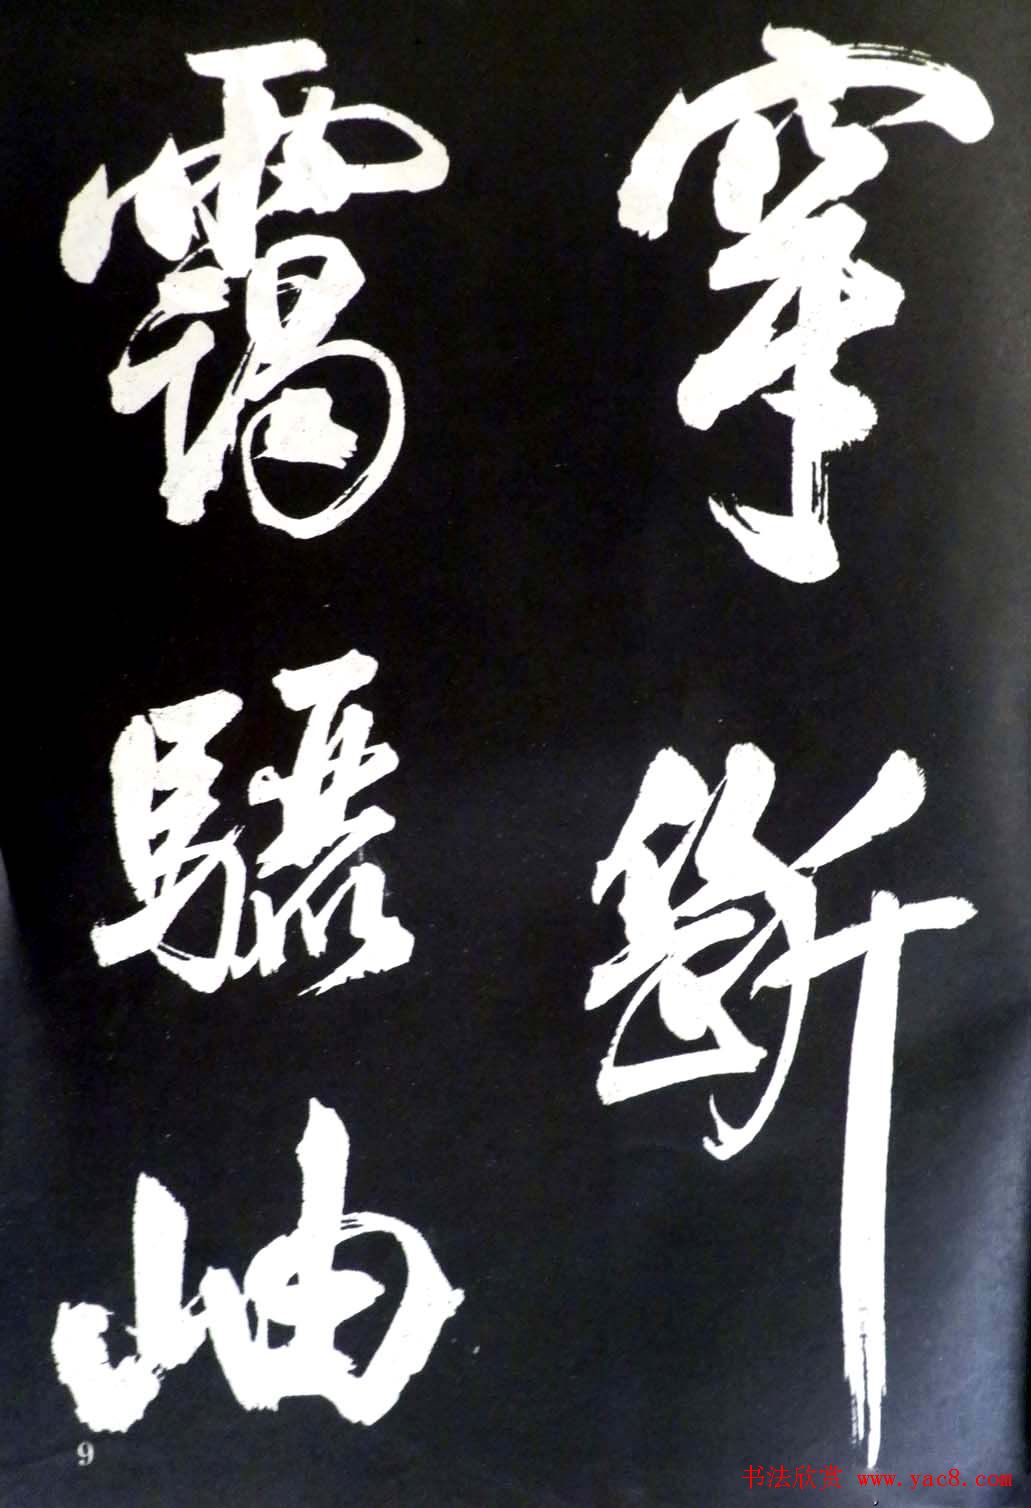 穿斷
靄驪岫
9
书法欣赏 www.yac8.com